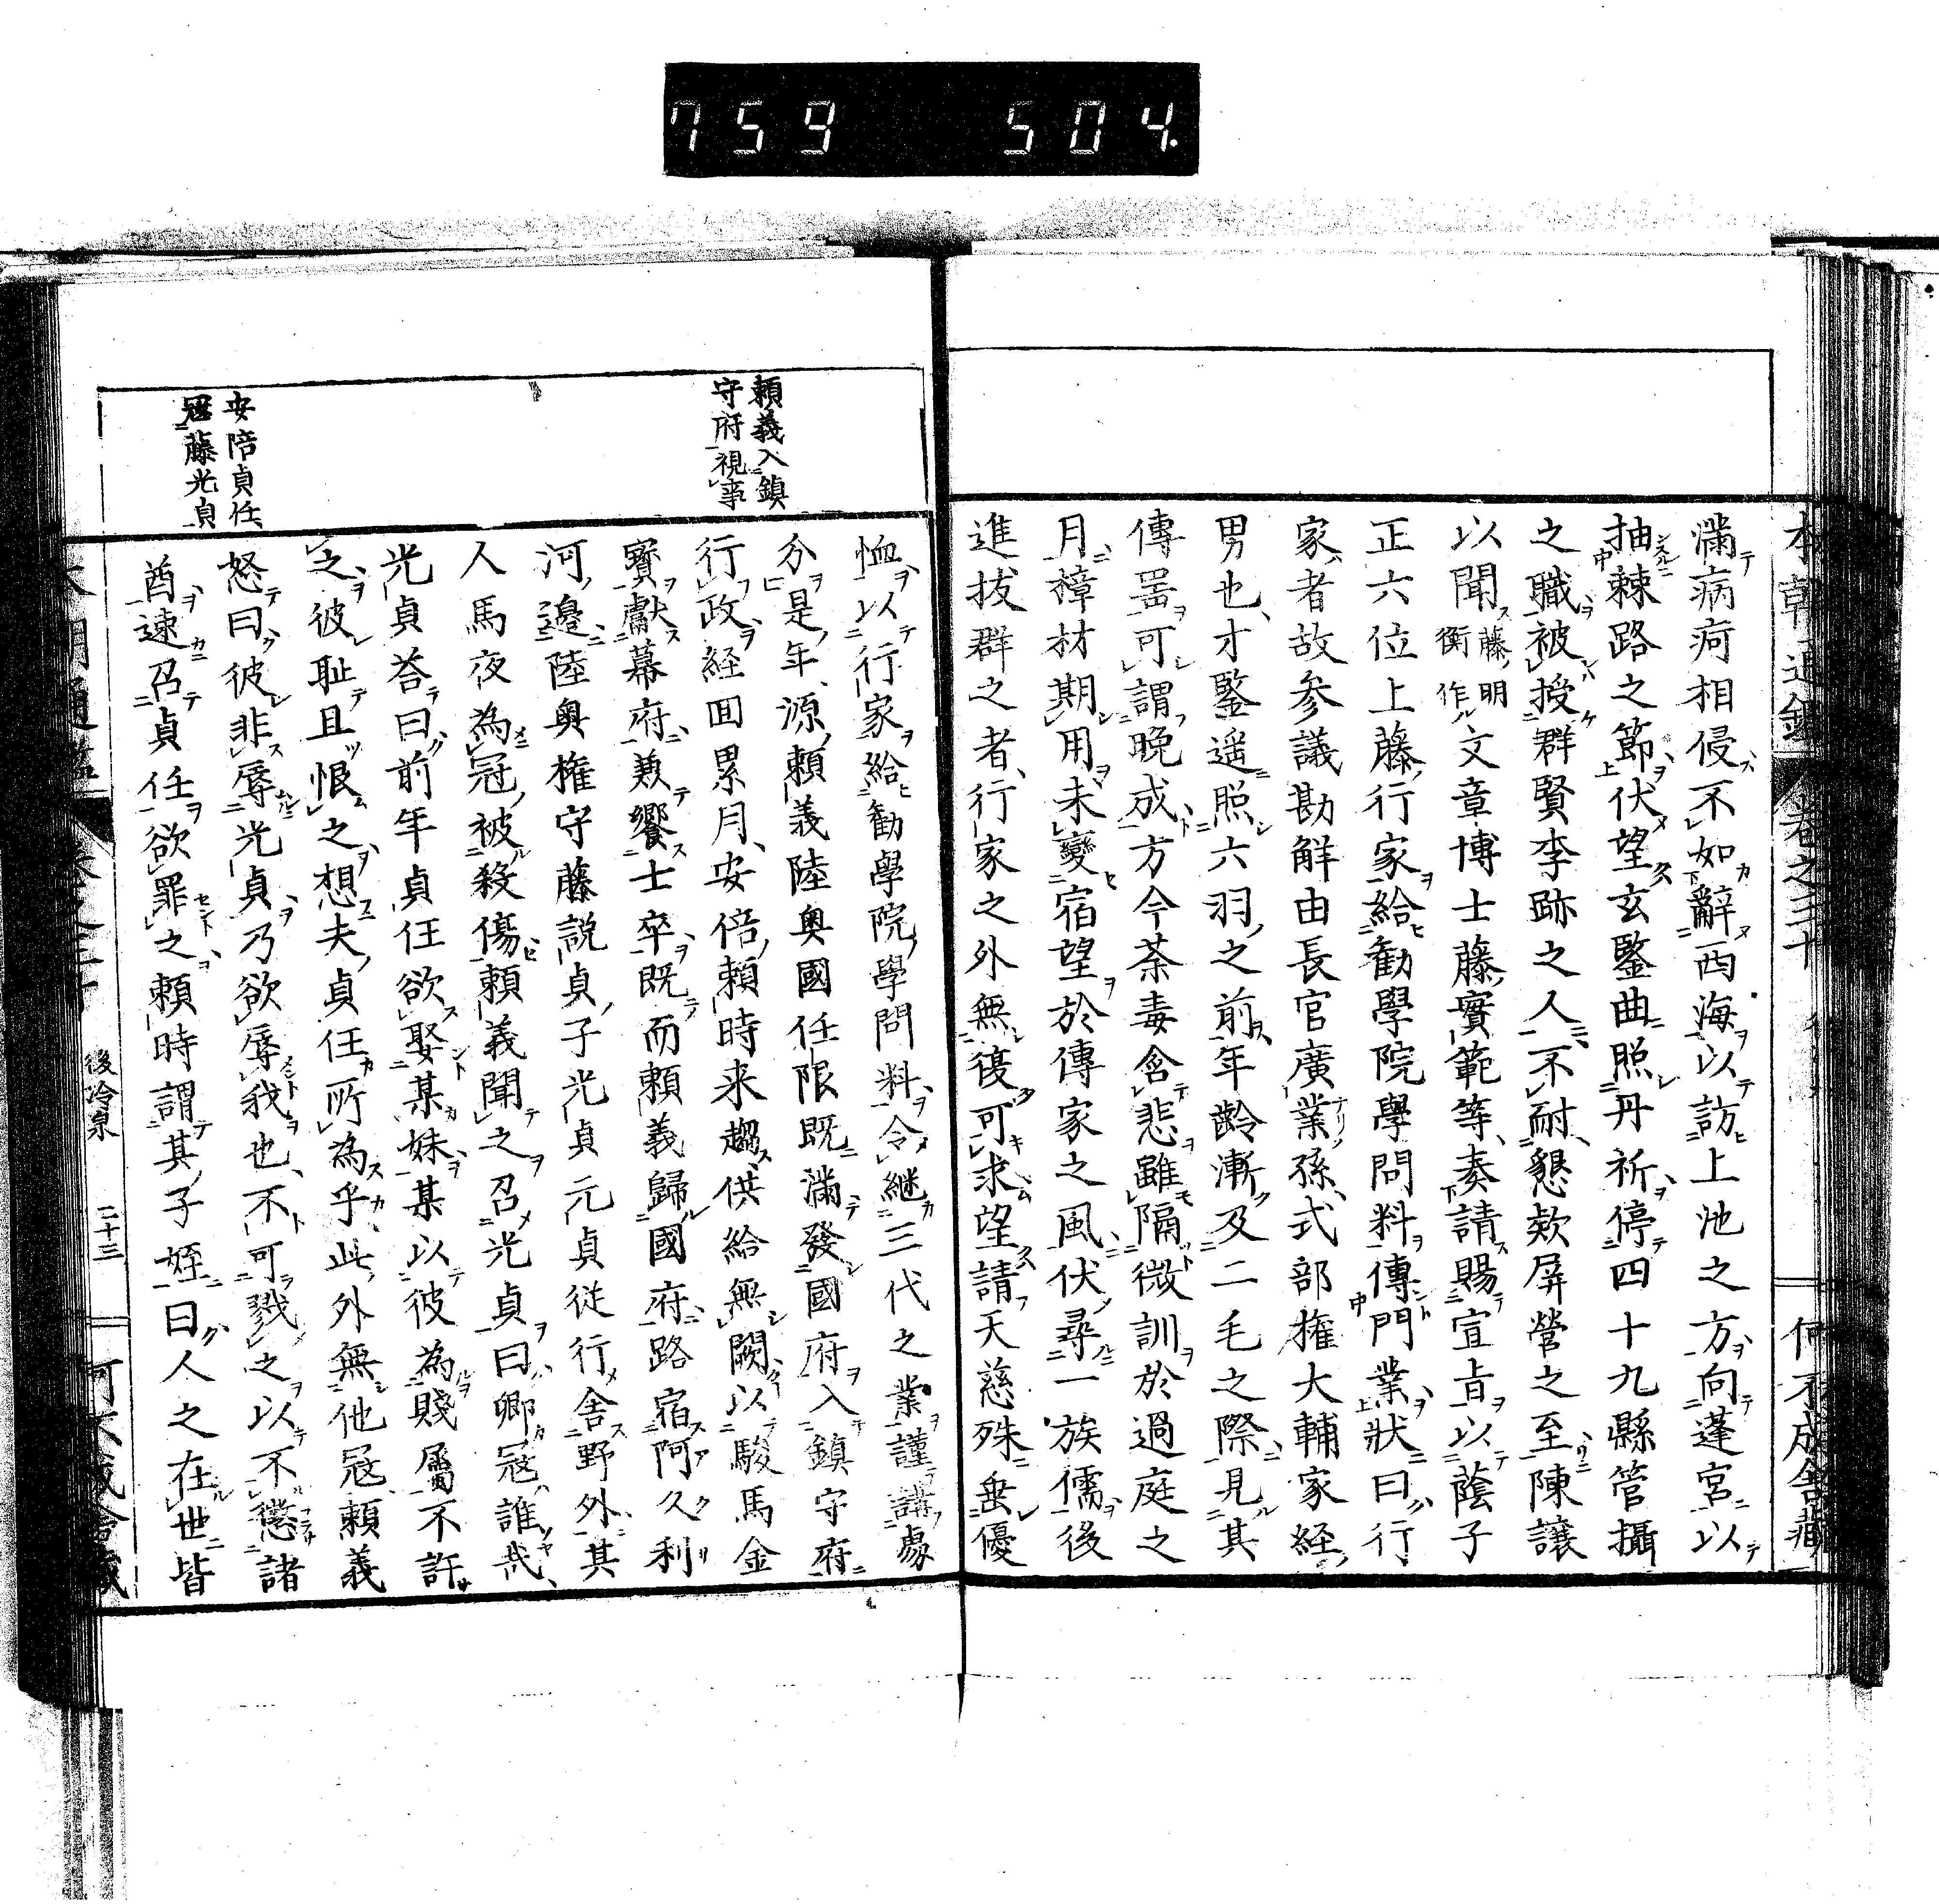 759 504
滿病痾相侵不如辭西海以訪上池之方向蓬宮以
抽棘路之節伏望玄鑒曲照丹祈停四十九縣管攝
之職被授群賢李跡之人不耐懇款屏營之至陳讓
以聞藤明衡作文章博士藤實範等奏請賜宣旨以蔭子
正六位上藤行家給勸學院學問料傳門業狀曰行
家者故參議勘解由長官廣業孫式部權大輔家経
男也才鑒遥照六羽之前年齡漸及二毛之際見其
傳噐可謂晩成方今荼毒含悲雖隔微訓於過庭之
月樟材期用未變宿望於傳家之風伏尋一族儒後
進拔群之者行家之外無復可求望請天慈殊垂優
賴義入鎮
守府視事
恤以行家給勸學院學問料令継三代之業謹講處
分是年源賴義陸奥國任限既滿發國府入鎮守府
行政経囬累月安倍賴時来趨供給無闕以駿馬金
寳獻幕府兼饗士卒既而賴義歸國府路宿阿久利
河邊陸奥權守藤説貞子光貞元貞従行舎野外其
人馬夜為冦被殺傷賴義聞之召光貞曰卿冦誰哉
光貞荅曰前年貞任欲娶某妹某以彼為賤屬不許
之彼耻且恨之想夫貞任所為乎此外無他冦賴義
怒曰彼非辱光貞乃欲辱我也不可戮之以不懲諸
酋速召貞任欲罪之賴時謂其子姪曰人之在世皆
安陪貞任
冦藤光貞
後冷泉
二十三